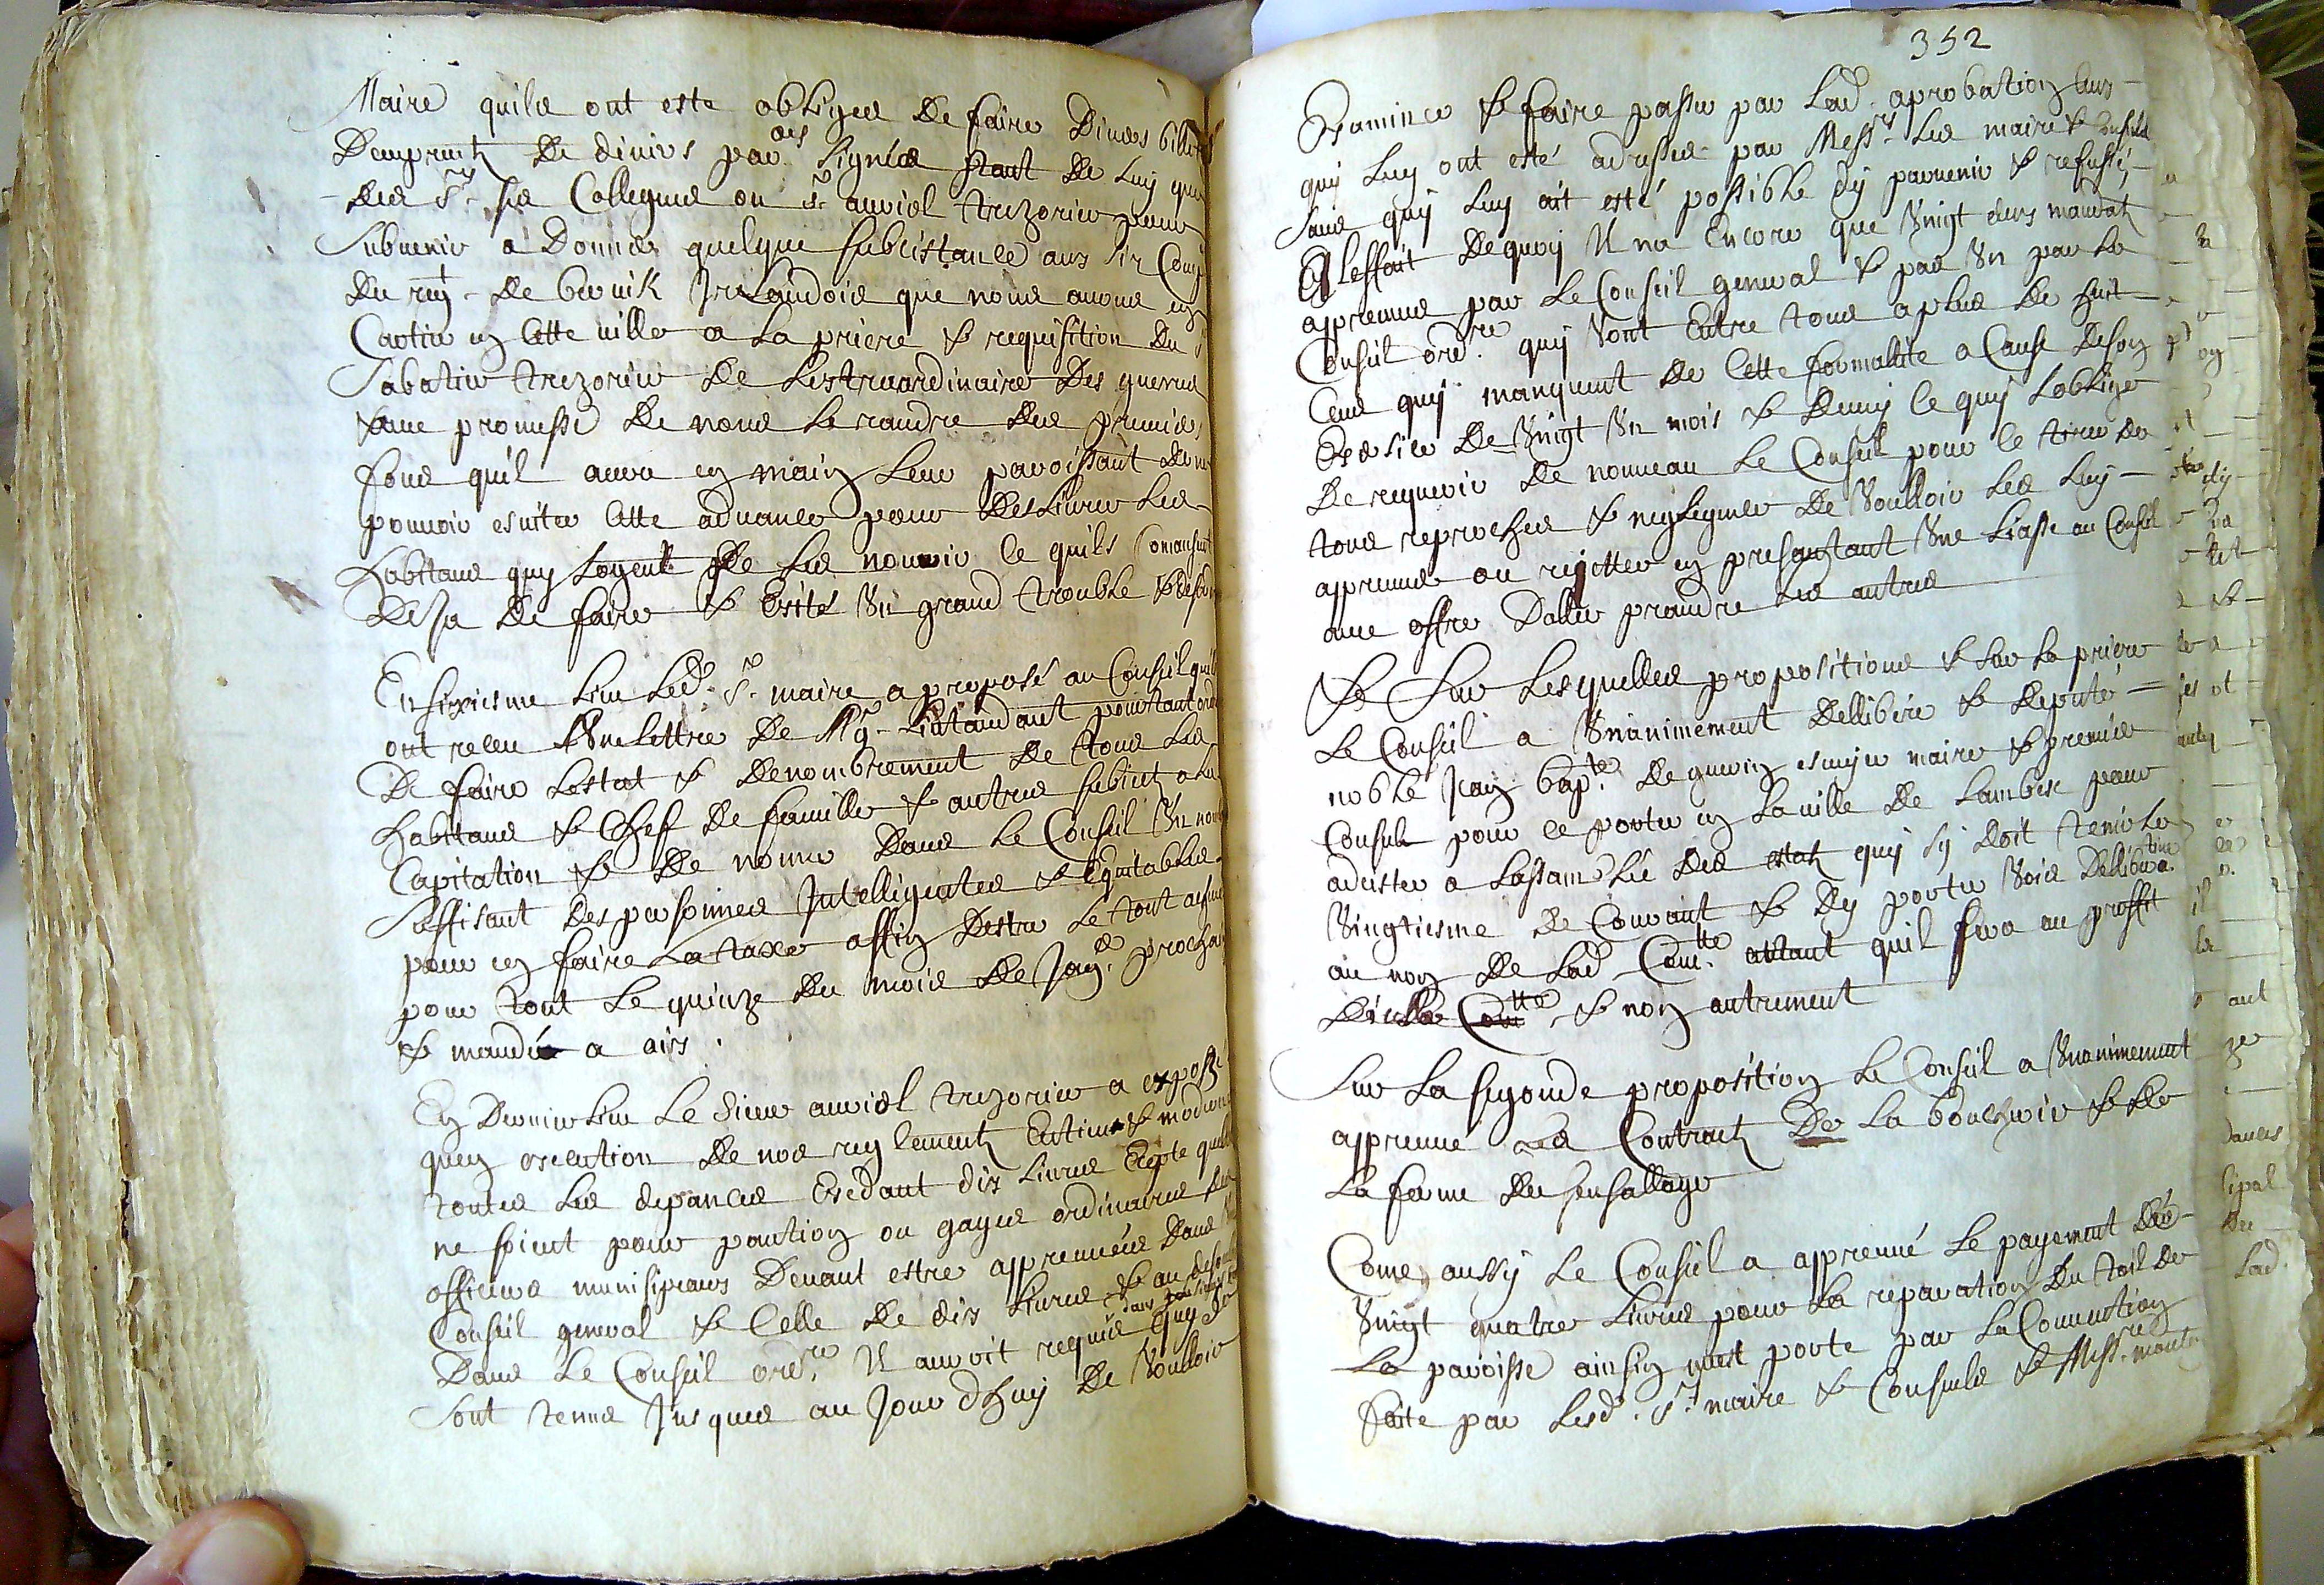 Maire quils ont este obliges de faire divers billets
Demprunt de divers par.ers signés tant de luy que
des Srs ses Collegues ou Sr auriol trezorier pour
Subvenir a Donner quelque subcistance aux six Comp
du regt de berwik Irelandois que nous avons en
Cartier en cette ville a la priere & requisition du Sr
Sabatier trezorier de Lextraordinaire des guerres
sous promesse de nous le randre des premiers
fonds quil aura en main Leur paroissant de ne
pouvoir esviter cette advance pour deslivrer les
habitans quy logent de les nourir ce quils comansent
desja de faire & Esité un grand trouble & desor

En sixiesme lieu led. Sr maire a proposé au Conseil quils
ont receu Une lettre de Mgr Lintandant pourtant ordre
De faire lestat & denombrement de tous les
habitans & Chef de famille & autres subiets a la
Capitation & de nomer dans le Conseil Un nombre
Suffisant des personnes Intelligentes & equitables
pour en faire la taxe affin destre le tout
pour tout le quinze du mois de Janr prochain
& mandée a aix.

En dernier lieu le sieur auriol trezorier a exposé
quen execution de nos reglements Entiens & modernes
toutes les depances Exedant dix livres Exepte quelles
ne soient pour pantion ou gages ordinaires des
officiers munisipeaux Devant estre appreuvées dans
Conseil general & Celle de dix livres & au desous
Dans le Conseil ordre Il auroit requis dans quy se
Sont tenus Jusques au Jour dhuy de Voulloir

352

Examiner & faire passer par lad. aprobation ceux
quy luy ont esté adressés par Messrs les maire & Consuls
sans quy luy ait esté possible dy parvenir & refussé
A leffait dequoy Il na Encore que Vingt deux mandats
appreuves par le Conseil general & par Un par le
Conseil ordre quy sont Entre tous a plus de huit
Cens quy manquent de Cette formalité a Cause de son
Exersice de Vingt Un mois & demy ce quy Loblige
De requerir de nouveau le Conseil pour ce tirer de
tous reproches & negligence de Voulloir les luy
appreuver ou rejetter en presantant Une liasse au Conseil
avec offre Daller prandre les autres

& Sur lesquelles propositions & sur la priere
le Conseil a Unanimement Delliberé & deputé
noble Jean bapte de guerin escuyer maire & premier
Consul pour ce porter en la ville de Lambesc pour
adcister a lassamblée des estats quy sy doit tenir le
Vingtiesme de Courant & dy porter Voix Delliberative
au nom de lad Comtte attant quil sera au proffit
Dicelle Comtte & non autrement

Sur la segonde proposition le Conseil a Unanimement
appreuvé les Contracts De la boucherie & de
La ferme du sensallage

Come aussy le Conseil a appreuvé le payement des
Vingt quatre livres pour la reparation du toit de
La paroisse ainsin quest porté par la Convention
faite par lesd. Srs maire & Consuls & Messre